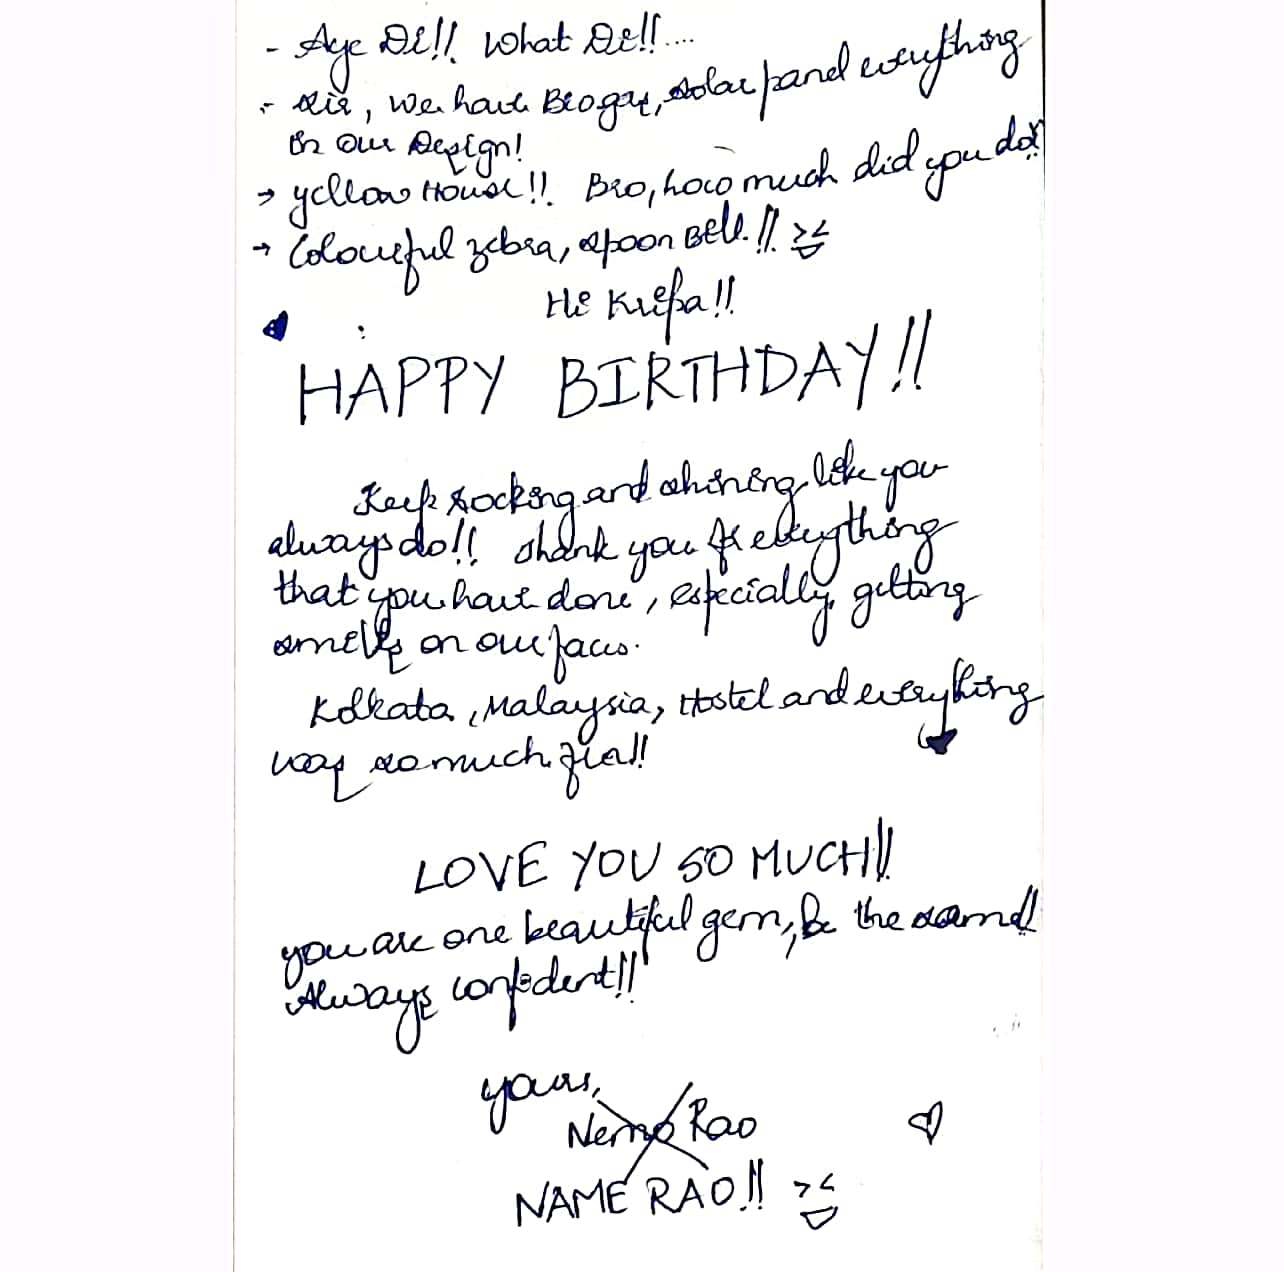 - Aye De!! What De!!....
- Sir, we have Biogas, solar panel everything
in our Design!
→ yellow House!! Bro, how much did you do?
→ Colourful zebra, spoon Bell!! ><
Hi Kripa!!
HAPPY BIRTHDAY!!
Keep rocking and shining like you
always do!! Thank you for everything
that you have done, especially getting
smiles on our faces.
Kolkata, Malaysia, Hostel and everything
was so much fun!!
LOVE YOU SO MUCH!!
you are one beautiful gem, Be the same!!
Always confident!!
yours,
Nemo Rao
NAME RAO!! ><